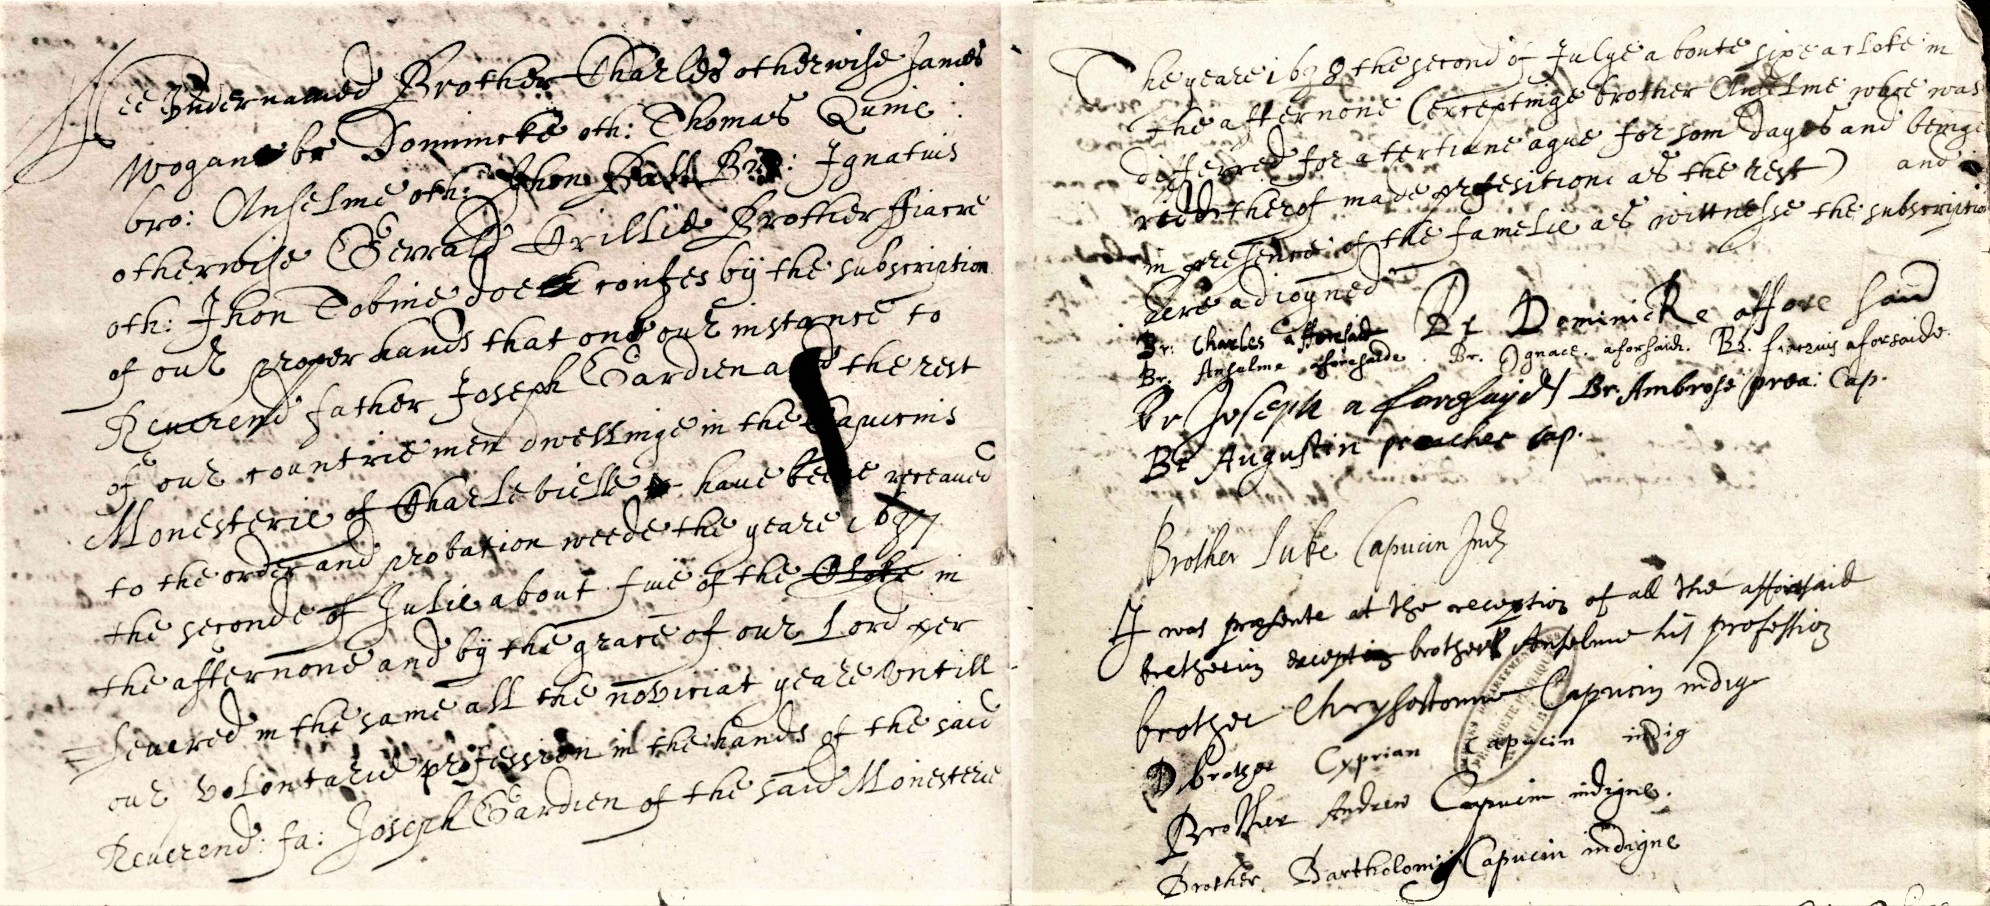 Wee Vndernamed Brother Charles otherwise James
Wogan br Dominicke oth: Thomas Quine
bro: Anselme oth: Jhon Ball Br: Ignatius
otherwise Gerrald Trillie Brother ffiacre
oth: Jhon Tobine doeth confes bÿ the subscription
of our proper hands that one our instance to
Reverend father Joseph Gardien and the rest
of our countrie men dwellinge in the Capucins
Monesterie of Charlevielle have beene receaued
to the order and probation weede the yeare 1637
the seconde of Julie about fiue of the Cloke in
the afternone and bÿ the grace of our Lord per
seuered in the same all the noviciat yeare vntill
our volontarie profession in the hands of the said
Reuerend: fa: Joseph Gardien of the said Monesterie
The yeare 1638 the second of Julye a boute sixe a cloke in
the afternone (exceptinge brother Anselme whoe was
differred for a tertiane ague for som dayes and beinge
redd therof made profesition as the rest) and
in presence of the famelie as wittnesse the subscription
here adioyned
Br: Charles afforsaid Br Dominicke affore said
Br. Anselme aforesaide. Br. Ignace. aforsaide. Br. fiacrius aforsaide.
br Joseph a foresayd Br. Ambrose prea: Cap.
Br Augustin preacher cap.
Brother Luke Capucin Ind
I was presente at the reception of all the afforsaid
bretherin except brother Anselme his profession
brother Chrysostome Capucin indig
brother Cyprian Capucin indig
Brother Andrew Capucin indigne.
Brother Bartholomy Capucin indigne